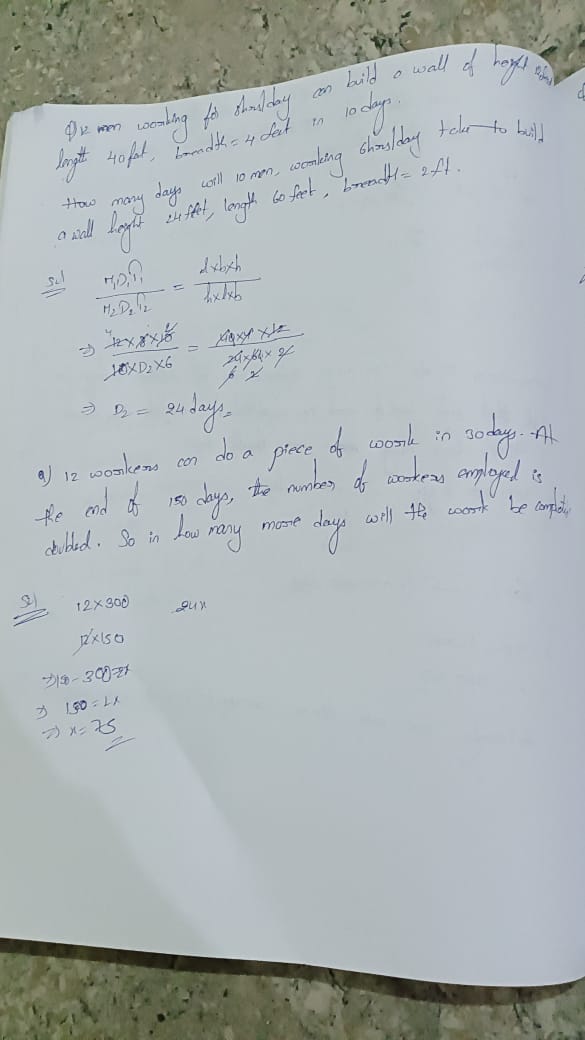 Q) 12 men working for 8hrs/day can build a wall of height
length 40 feet, breadth = 4 feet in 10 days.
How many days will 10 men, working 6hrs/day take to build
a wall height 24 feet, length 60 feet, breadth = 2 ft.
Sol M₁D₁T₁ / M₂D₂T₂ = l×b×h / h×l×b
⇒ 12 × 8 × 10 / 10 × D₂ × 6 = 40 × 4 × 12 / 24 × 60 × 2
⇒ D₂ = 24 days
Q) 12 workers can do a piece of work in 30 days. At
the end of 150 days, the number of workers employed is
doubled. So in how many more days will the work be
Sol 12×300 24x
12×150
⇒ 150 = 2x
⇒ x = 75